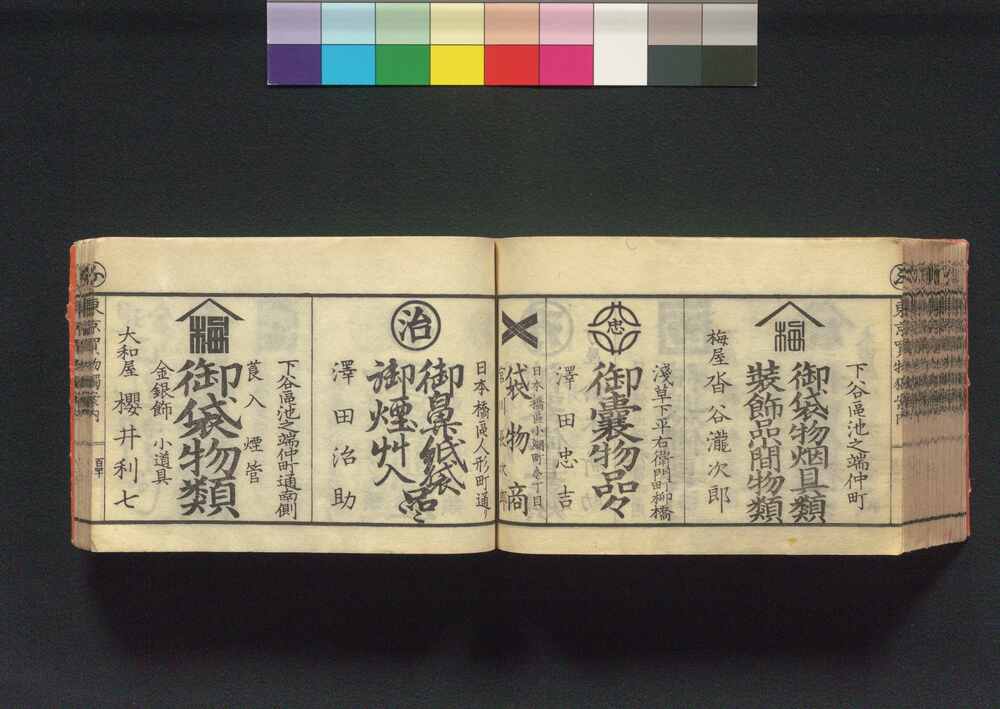 下谷區池之端仲町
梅
御袋物烟具類
装飾品間物類
梅屋沓谷瀧次郎
淺草下平右衛門町柳橋
忠
御囊物品々
澤田忠吉
日本橋區小網町
袋物商
日本橋區人形町通
治
御鼻紙袋品々
御煙艸入
澤田治助
下谷區池之端仲町通南側
莨入 煙管
梅
御袋物類
金銀飾 小道具
大和屋 櫻井利七
東京買物獨案内
百十